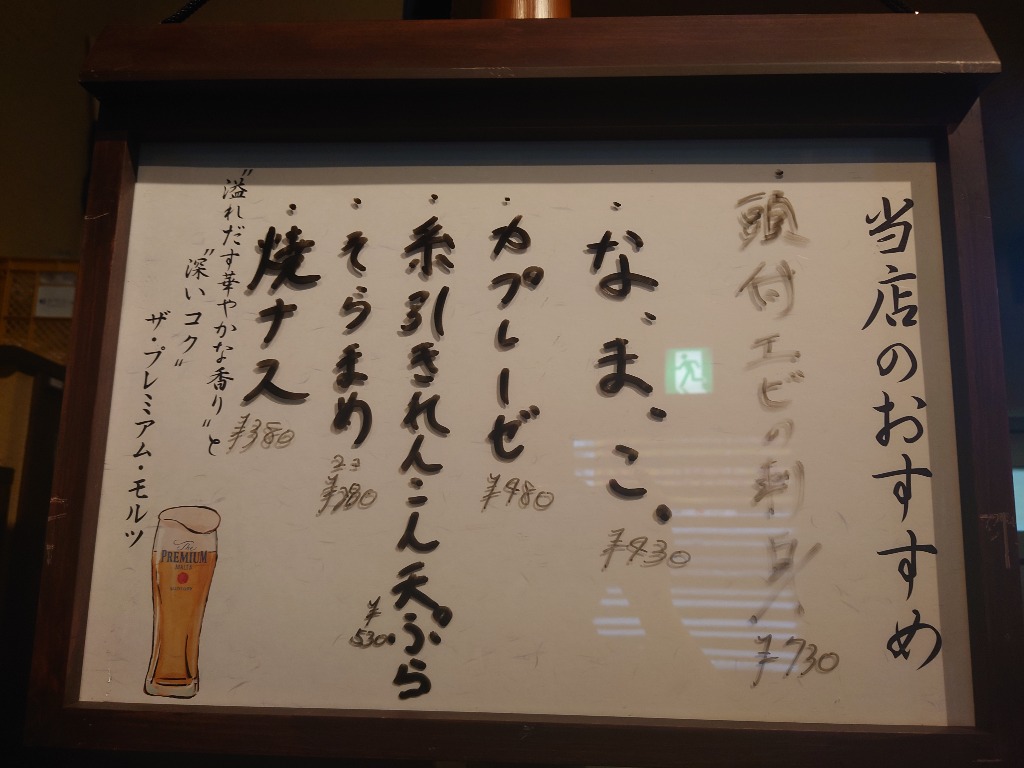 当店のおすすめ
・頭付エビの刺身
¥730
・な、ま、こ。
¥430
・カプレーゼ
¥480
・糸引きれんこん天ぷら
¥530
・そらまめ
¥380
・焼ナス
¥380
"溢れだす華やかな香り"と
"深いコク"
ザ・プレミアム・モルツ
The
PREMIUM
MALT'S